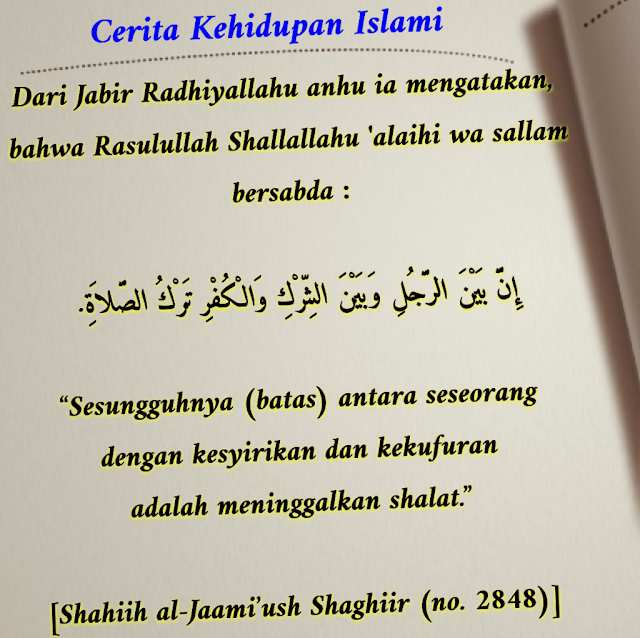 Cerita Kehidupan Islami
Dari Jabir Radhiyallahu anhu ia mengatakan,
bahwa Rasulullah Shallallahu 'alaihi wa sallam
bersabda :
إِنَّ بَيْنَ الرَّجُلِ وَبَيْنَ الشِّرْكِ وَالْكُفْرِ تَرْكُ الصَّلاَةِ.
“Sesungguhnya (batas) antara seseorang
dengan kesyirikan dan kekufuran
adalah meninggalkan shalat.”
[Shahiih al-Jaami’ush Shaghiir (no. 2848)]